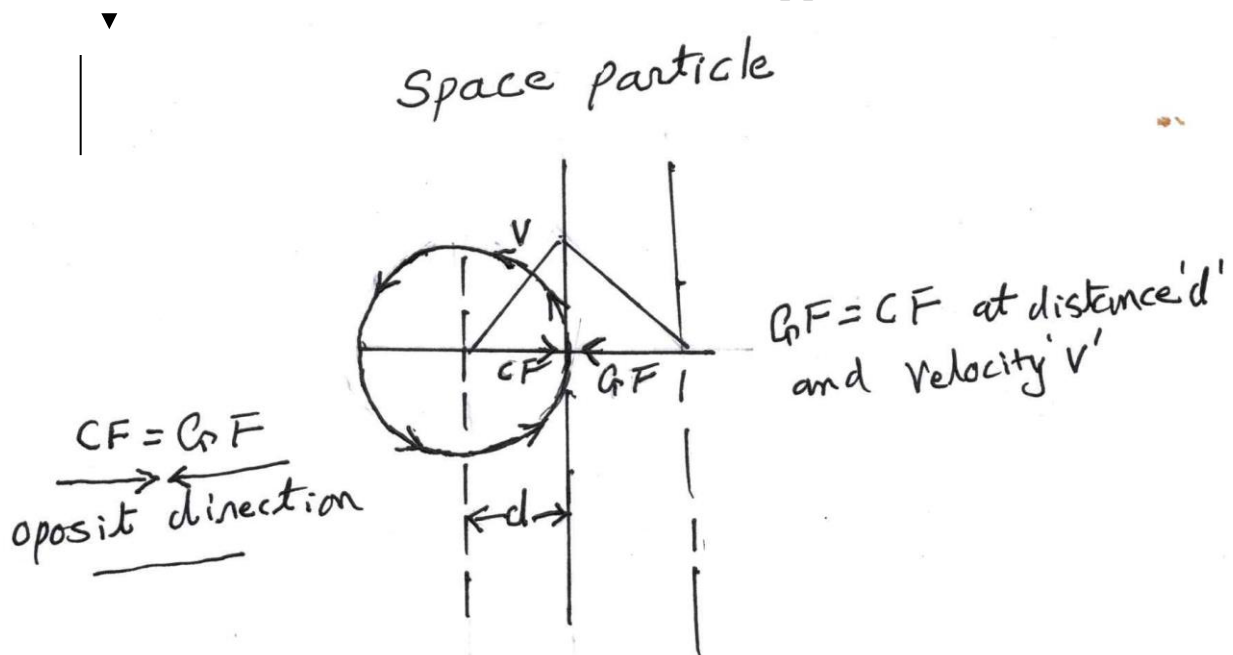 Space particle
V
CF GF
GF = CF at distance 'd'
and velocity 'v'
CF = GF
oposit direction
d